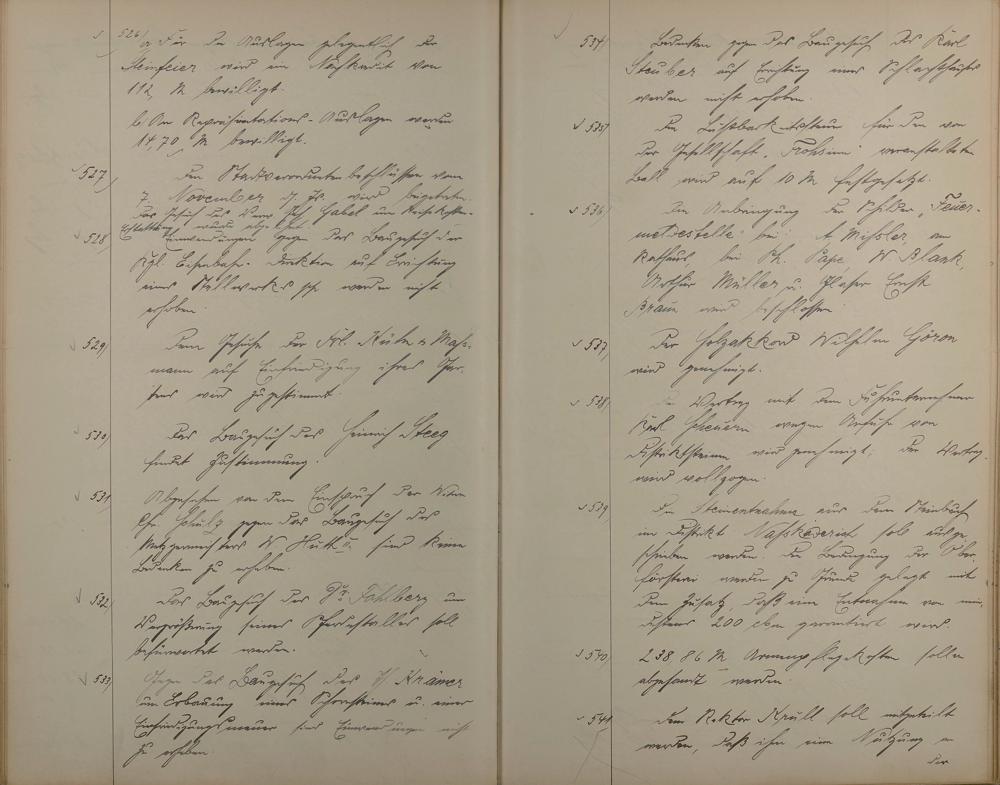 526/ a, Für die Auslagen gelegentlich der
Steinfeier wird ein Nachkredit von
112, M bewilligt.
b, An Repräsentations-Auslagen werden
14,70 M bewilligt.
527/ Den Stadtverordnetenbeschlüssen vom
7. November d. Js. wird beigetreten.
Das Gesuch des Gabel um
wurde abgelehnt.
528/ Einwendungen gegen das Baugesuch der
Kgl. Eisenbahn-Direktion auf Errichtung
eines Stellwerkes pp. werden nicht
erhoben.
529/ Dem Gesuche der Frl. Käthe Maß-
mann auf Einfriedigung ihres Gar-
tens wird zugestimmt.
530/ Das Baugesuch des Heinrich Steeg
findet Zustimmung.
531/ Abgesehen von dem Einspruch der Witwe
Chr. Schulz gegen das Baugesuch des
Metzgermeisters W Huth II. sind keine
Bedenken zu erheben.
532/ Das Baugesuch des Dr. Fohlberg um
Vergrößerung seines Pferdestalles soll
befürwortet werden.
533/ Gegen das Baugesuch des Krämer
um Erbauung eines Schornsteines u. einer
Einfriedigungsmauer sind Einwendungen nicht
zu erheben.
534/ Bedenken gegen das Baugesuch des Karl
Steuber auf Errichtung eines Schlachthauses
werden nicht erhoben.
535/ Die Lustbarkeitssteuer für den von
der Gesellschaft "Frohsinn" veranstalteten
Ball wird auf 10 M festgesetzt.
536/ Die Anbringung der Schilder "Feuer-
meldestelle" bei: A Missler, am
Rathaus, bei Ph. Pape, W Blank,
Arthur Müller u. Glaser Ernst
Braun wird beschlossen.
537/ Der Holzakkord Wilhelm Göron
wird genehmigt.
538/ Der Vertrag mit dem Fuhrunternehmer
Karl Scheuern wegen Anfuhr von
Distriktsteinen wird genehmigt; der Vertrag
wird vollzogen.
539/ Die Steinentnahme aus dem Steinbruch
im Distrikt soll ausge-
schrieben werden. Die Bedingung der Ober-
försterei werden zu Grunde gelegt mit
dem Zusatz, daß eine Entnahme von min-
destens 200 cbm garantiert wird.
540/ 238,86 M Armenpflegekosten sollen
abgesandt werden.
541 Dem Rektor Krull soll mitgeteilt
werden, daß ihm eine Nutzung an
der